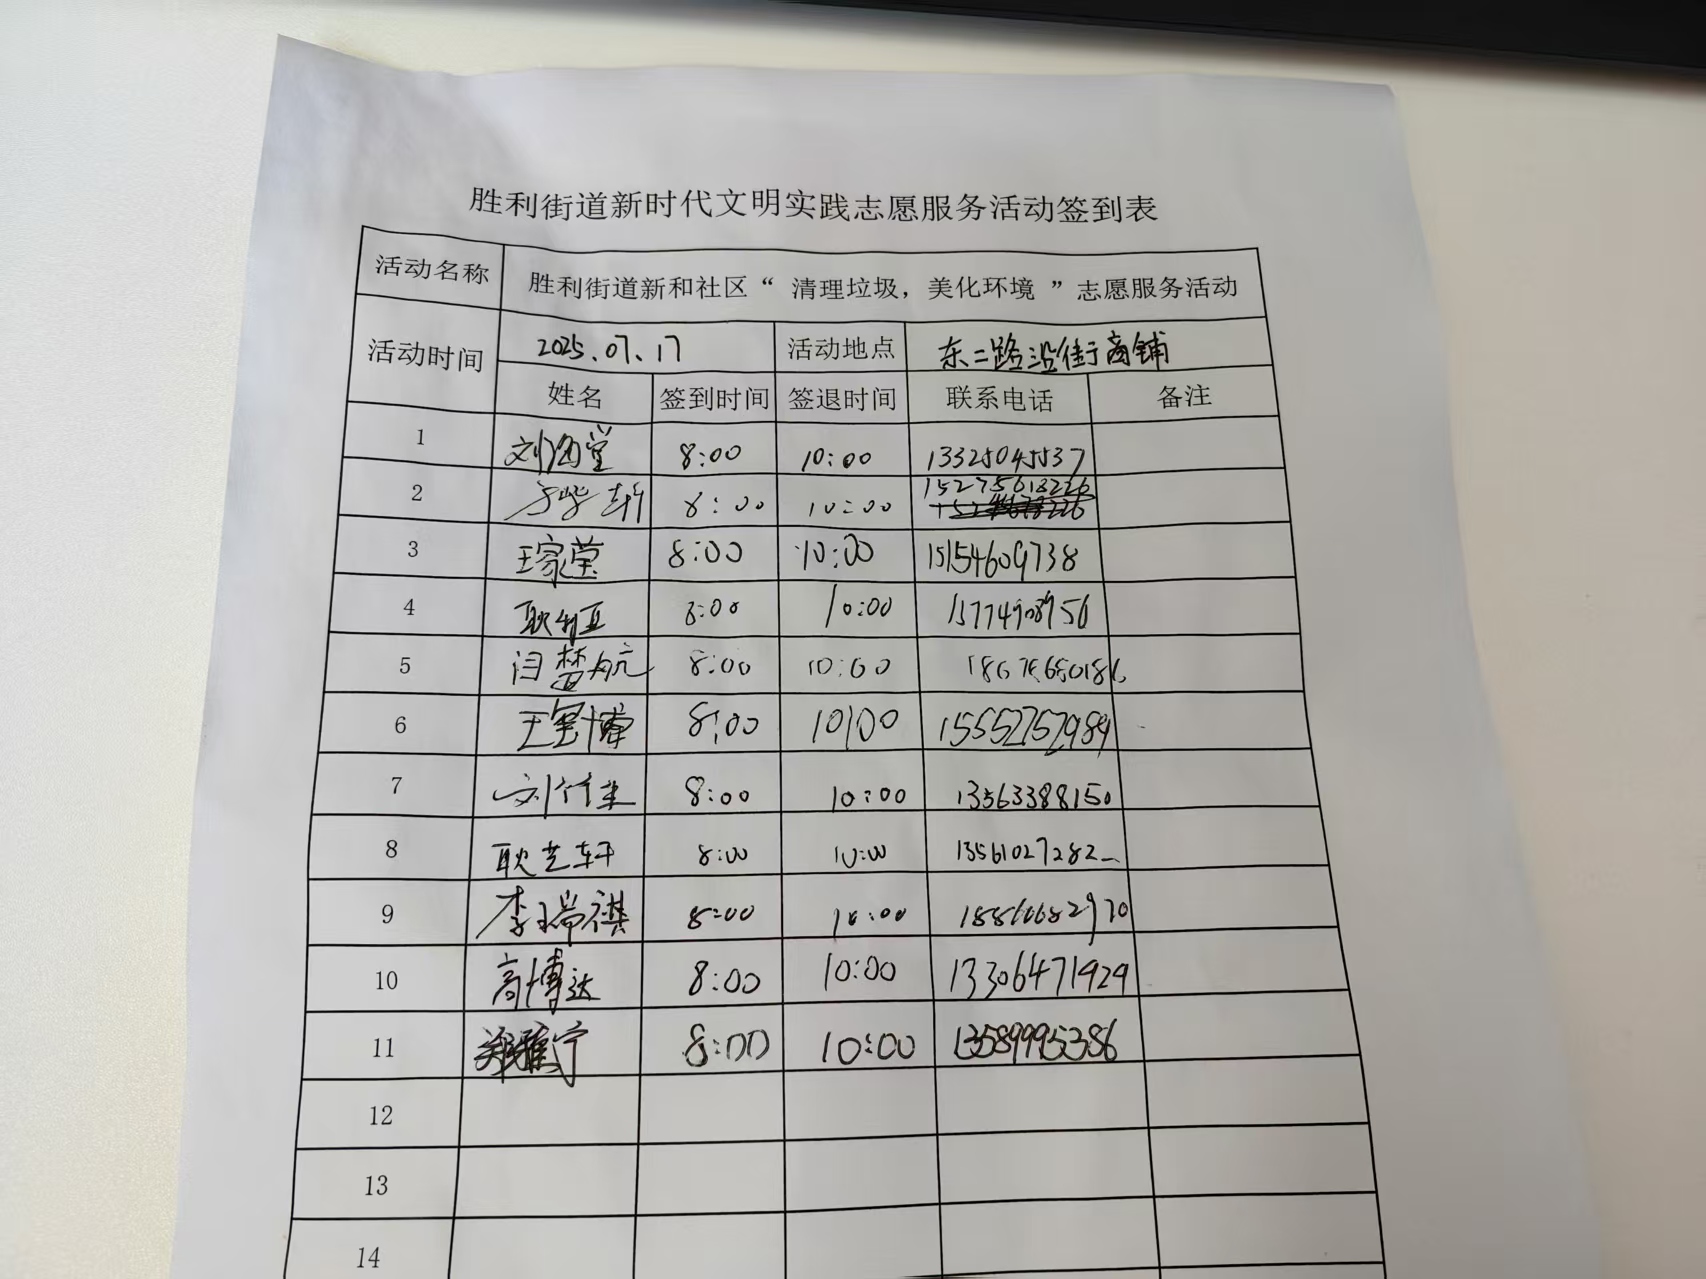 胜利街道新时代文明实践志愿服务活动签到表
活动名称 胜利街道新和社区“ 清理垃圾，美化环境 ”志愿服务活动
活动时间 2025.07.17 活动地点 东二路沿街商铺
姓名 签到时间 签退时间 联系电话 备注
1 刘海堂 8:00 10:00 13325045537
2 8:00 10:00 15275618226
3 王家莹 8:00 10:00 15154609738
4 耿 8:00 10:00
5 闫梦航 8:00 10:00
6 王宝博 8:00 10:00 15552752989
7 刘竹 8:00 10:00 13563388150
8 耿艺轩 8:00 10:00 13561027282
9 李瑞祺 8:00 10:00
10 高博达 8:00 10:00 13306471929
11 郑雅宁 8:00 10:00 13589995386
12
13
14